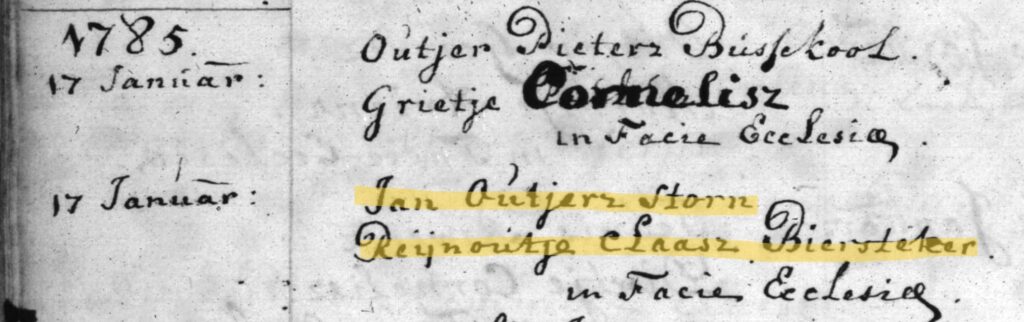 1785.
17 Januar:
Outjer Pieterz Bússekool.
Grietje Cornelisz
in Facie Ecclesiæ.
17 Januar:
Jan Outjerz Storn
Reijnoutje Claasz Biersteker
in Facie Ecclesiæ.